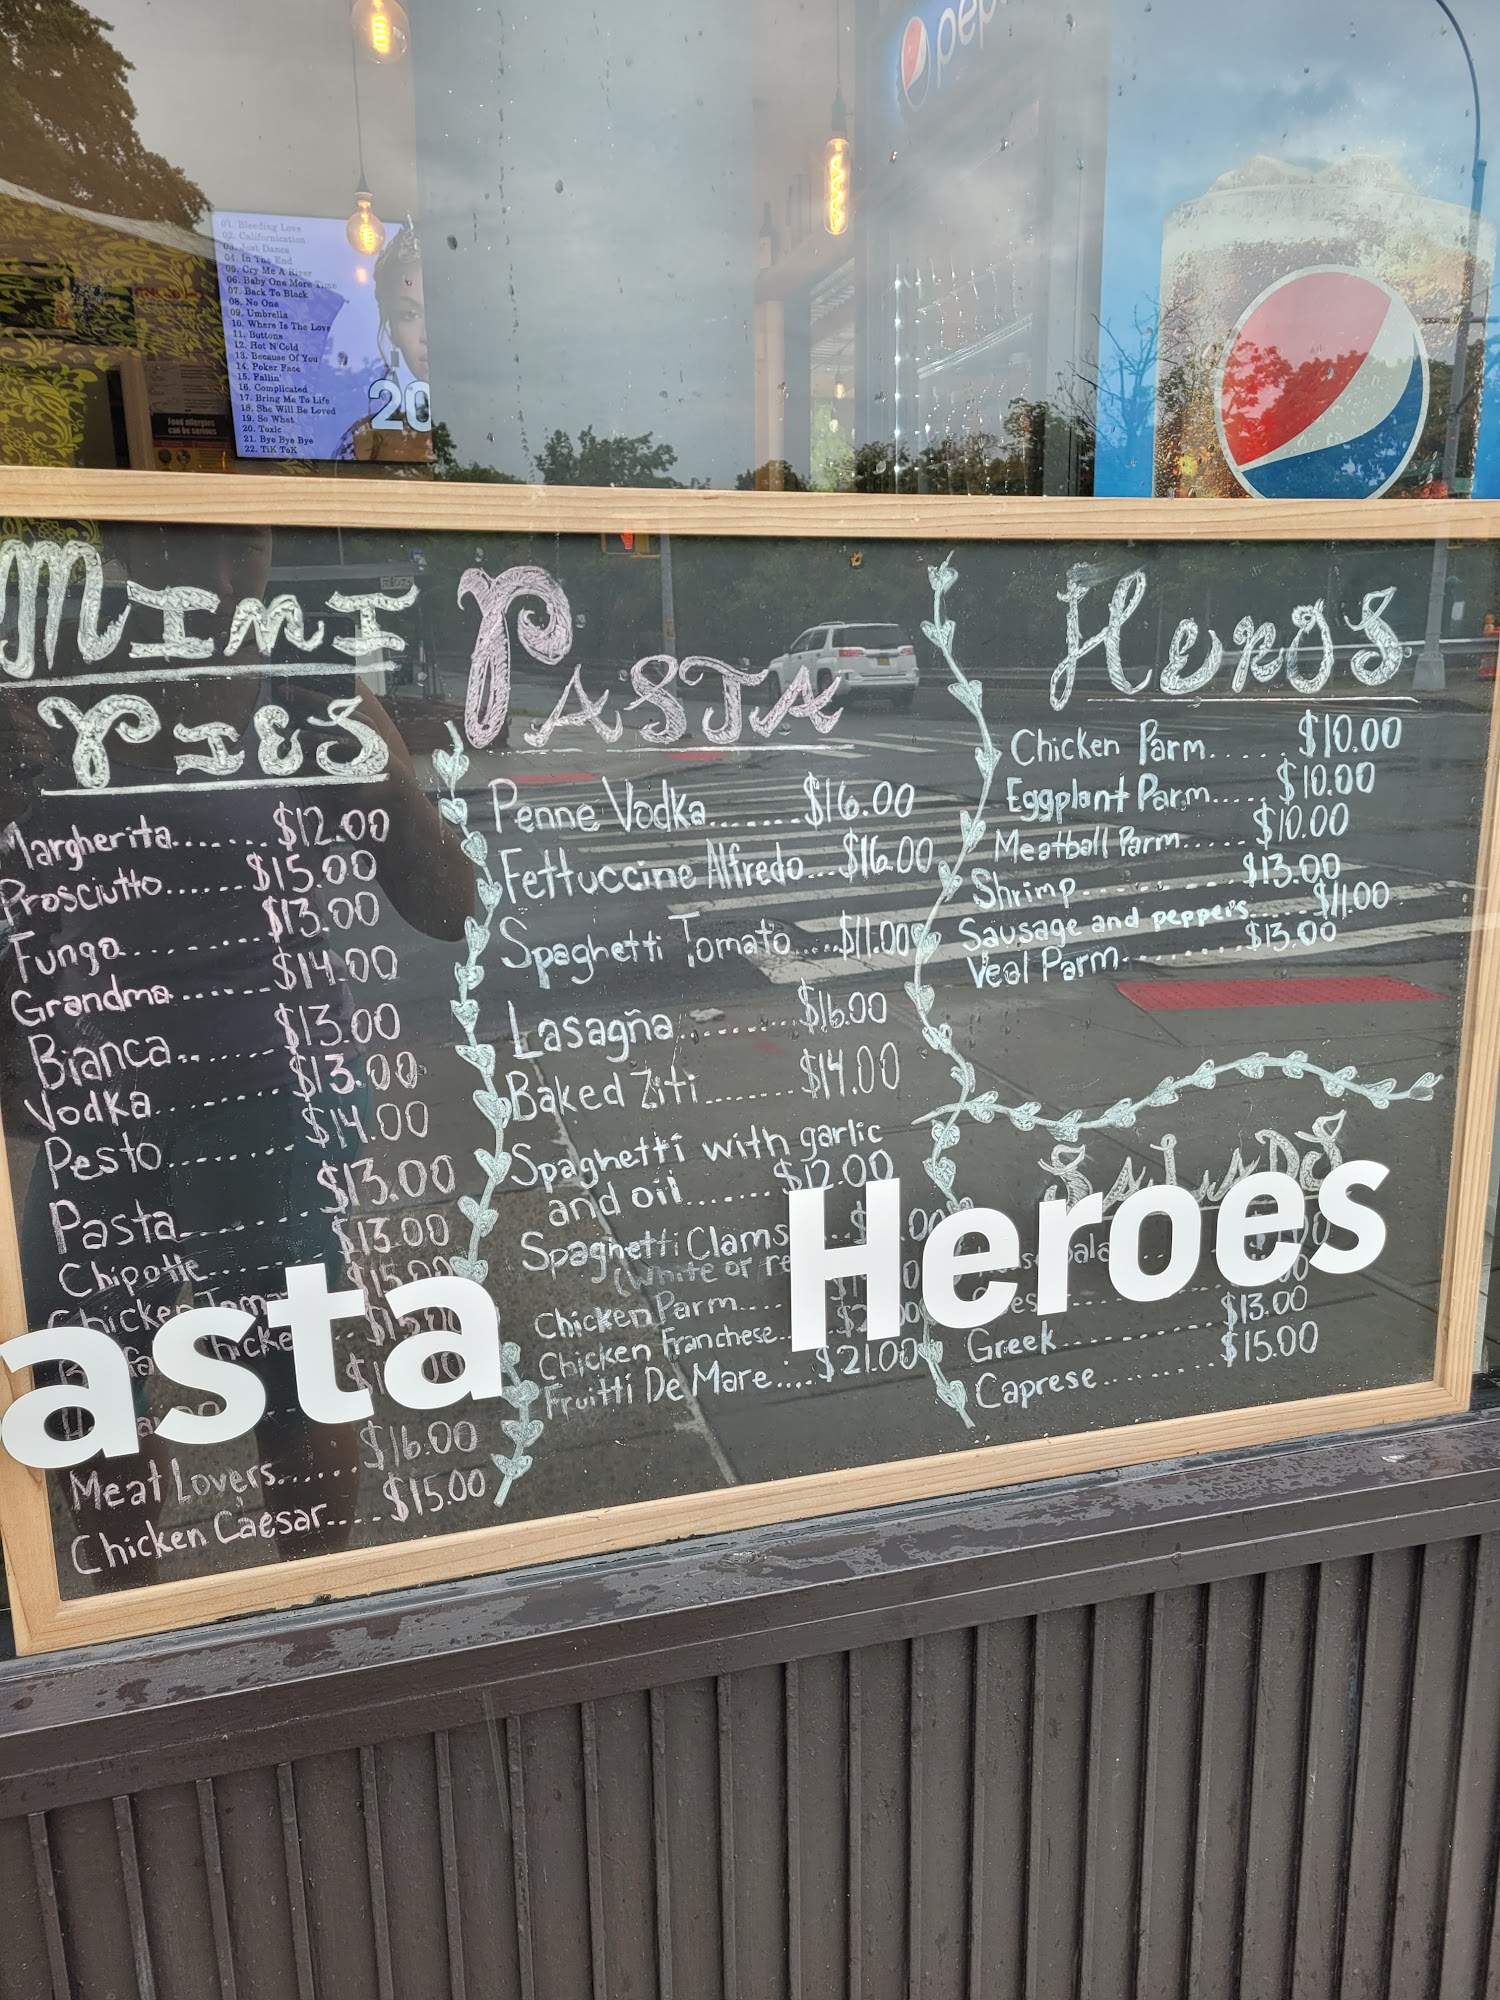 pep
01. Bleeding Love
02. Californication
03. Just Dance
04. In The End
05. Cry Me A River
06. Baby One More Time
07. Back To Black
08. No One
09. Umbrella
10. Where Is The Love
11. Buttons
12. Hot N Cold
13. Because Of You
14. Poker Face
15. Fallin'
16. Complicated
17. Bring Me To Life
18. She Will Be Loved
19. So What
20. Toxic
21. Bye Bye Bye
22. TiK ToK
20
Food allergies
can be serious
Mini
Pies
Margherita....... $12.00
Prosciutto...... $15.00
Fungo......... $13.00
Grandma....... $14.00
Bianca......... $13.00
Vodka......... $13.00
Pesto......... $14.00
Pasta......... $13.00
Chipotle....... $13.00
Chicken $15.00
Chicken $15.00
Meat Lovers...... $16.00
Chicken Caesar.... $15.00
Pasta
Penne Vodka....... $16.00
Fettuccine Alfredo... $16.00
Spaghetti Tomato..... $11.00
Lasagña......... $16.00
Baked Ziti....... $14.00
Spaghetti with garlic
and oil....... $12.00
Spaghetti Clams
(White or
Chicken Parm....
Chicken Franchese..
Fruitti De Mare.... $21.00
Heros
Chicken Parm...... $10.00
Eggplant Parm..... $10.00
Meatball Parm..... $10.00
Shrimp......... $13.00
Sausage and peppers..... $11.00
Veal Parm......... $13.00
Salads
Greek......... $13.00
Caprese......... $15.00
asta
Heroes